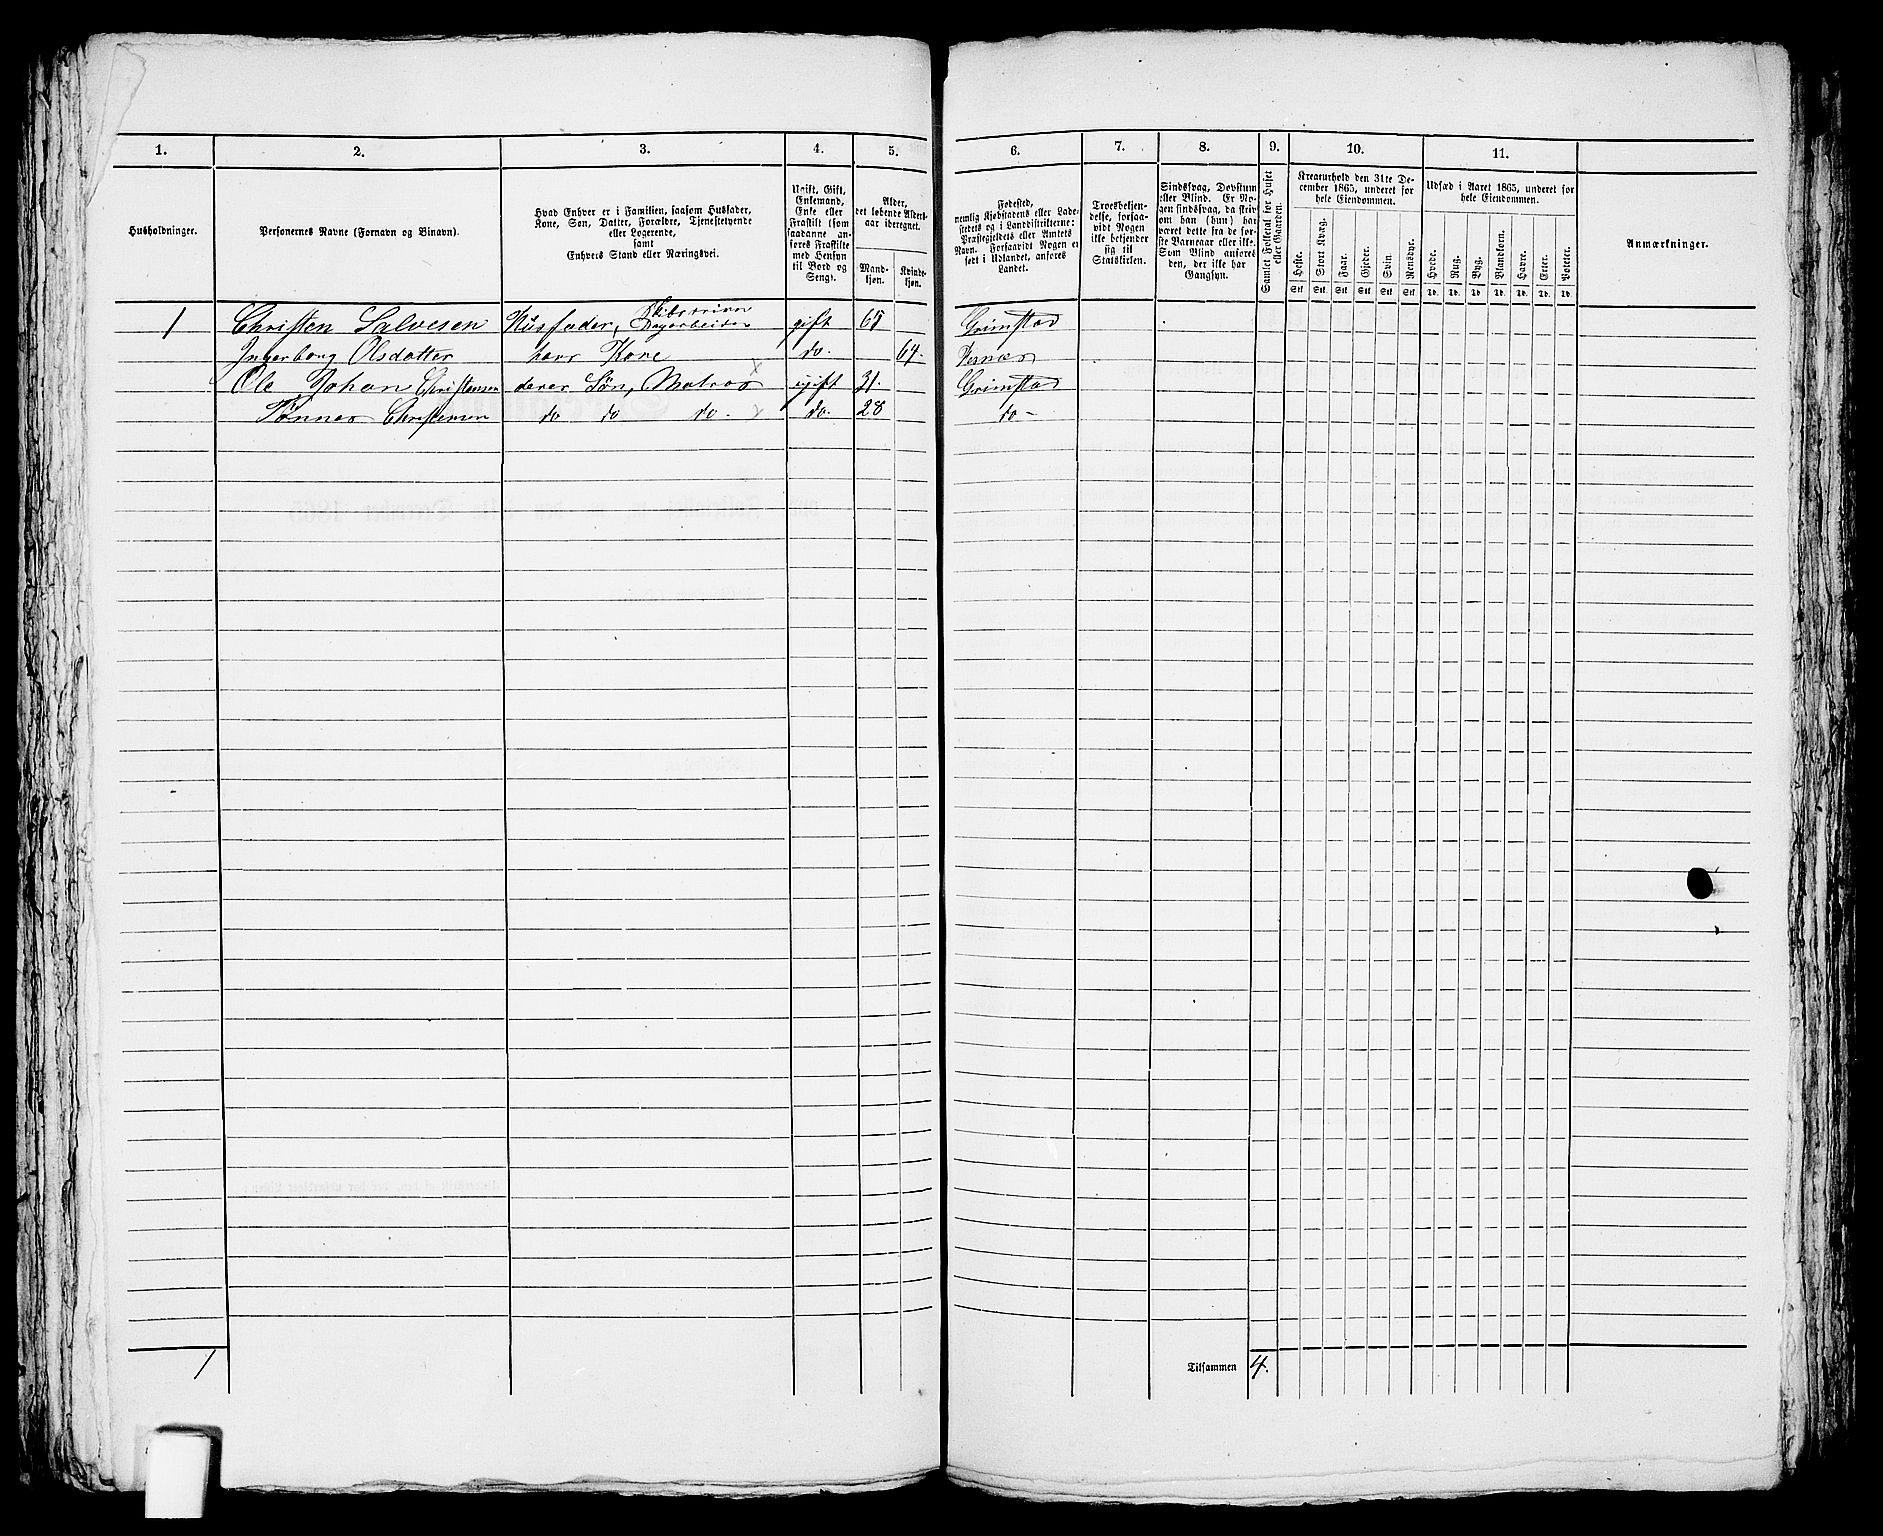 1. 2. 3. 4. 5. 6. 7. 8. 9. 10. 11.
Husholdninger.
Personernes Navne (Fornavn og Binavn).
Hvad Enhver er i Familien, saasom Husfader,
Kone, Søn, Datter, Forældre, Tjenestetyende
eller Logerende,
samt
Enhvers Stand eller Næringsvei.
Ugift, Gift,
Enkemand,
Enke eller
Fraskilt (som
saadanne an-
føres Fraskilte
med Hensyn
til Bord og
Seng).
Alder,
det løbende Alders-
aar iberegnet.
Mand-
kjøn.
Kvinde-
kjøn.
Fødested,
nemlig Kjøbstadens eller Lade-
stedets og i Landdistrikterne:
Præstegjeldets eller Annexets
Navn. Forsaavidt Nogen er
født i Udlandet, anføres
Landet.
Troesbekjen-
delse, forsaa-
vidt Nogen
ikke bekjender
sig til
Statskirken.
Sindssvag, Døvstum
eller Blind. Er No-
gen sindssvag, da skriv
om han (hun) har
været dette fra de før-
ste Barneaar eller ikke.
Som Blind anføres
den, der ikke har
Gangsyn.
Samlet Folketal for Huset
eller Gaarden.
Kreaturhold den 31te De-
cember 1865, underet for
hele Eiendommen.
Heste. Stort Kvæg. Faar. Gjeder. Svin. Rensdyr.
Stk Stk Stk Stk Stk Stk
Udsæd i Aaret 1865, underet for
hele Eiendommen.
Hvede. Rug. Byg. Blandkorn. Havre. Erter. Poteter.
Td. Td. Td. Td. Td. Td. Td.
Anmærkninger.
1 Christen Salvesen Husfader, Dagarbeider gift 68 Grimstad
Ingerborg Olsdatter hans Kone do. 64.
Ole Johan Christensen deres Søn, Matros ugift 31. Grimstad
Tønnes Christensen do do do - do. 28 do -
1 Tilsammen 4.